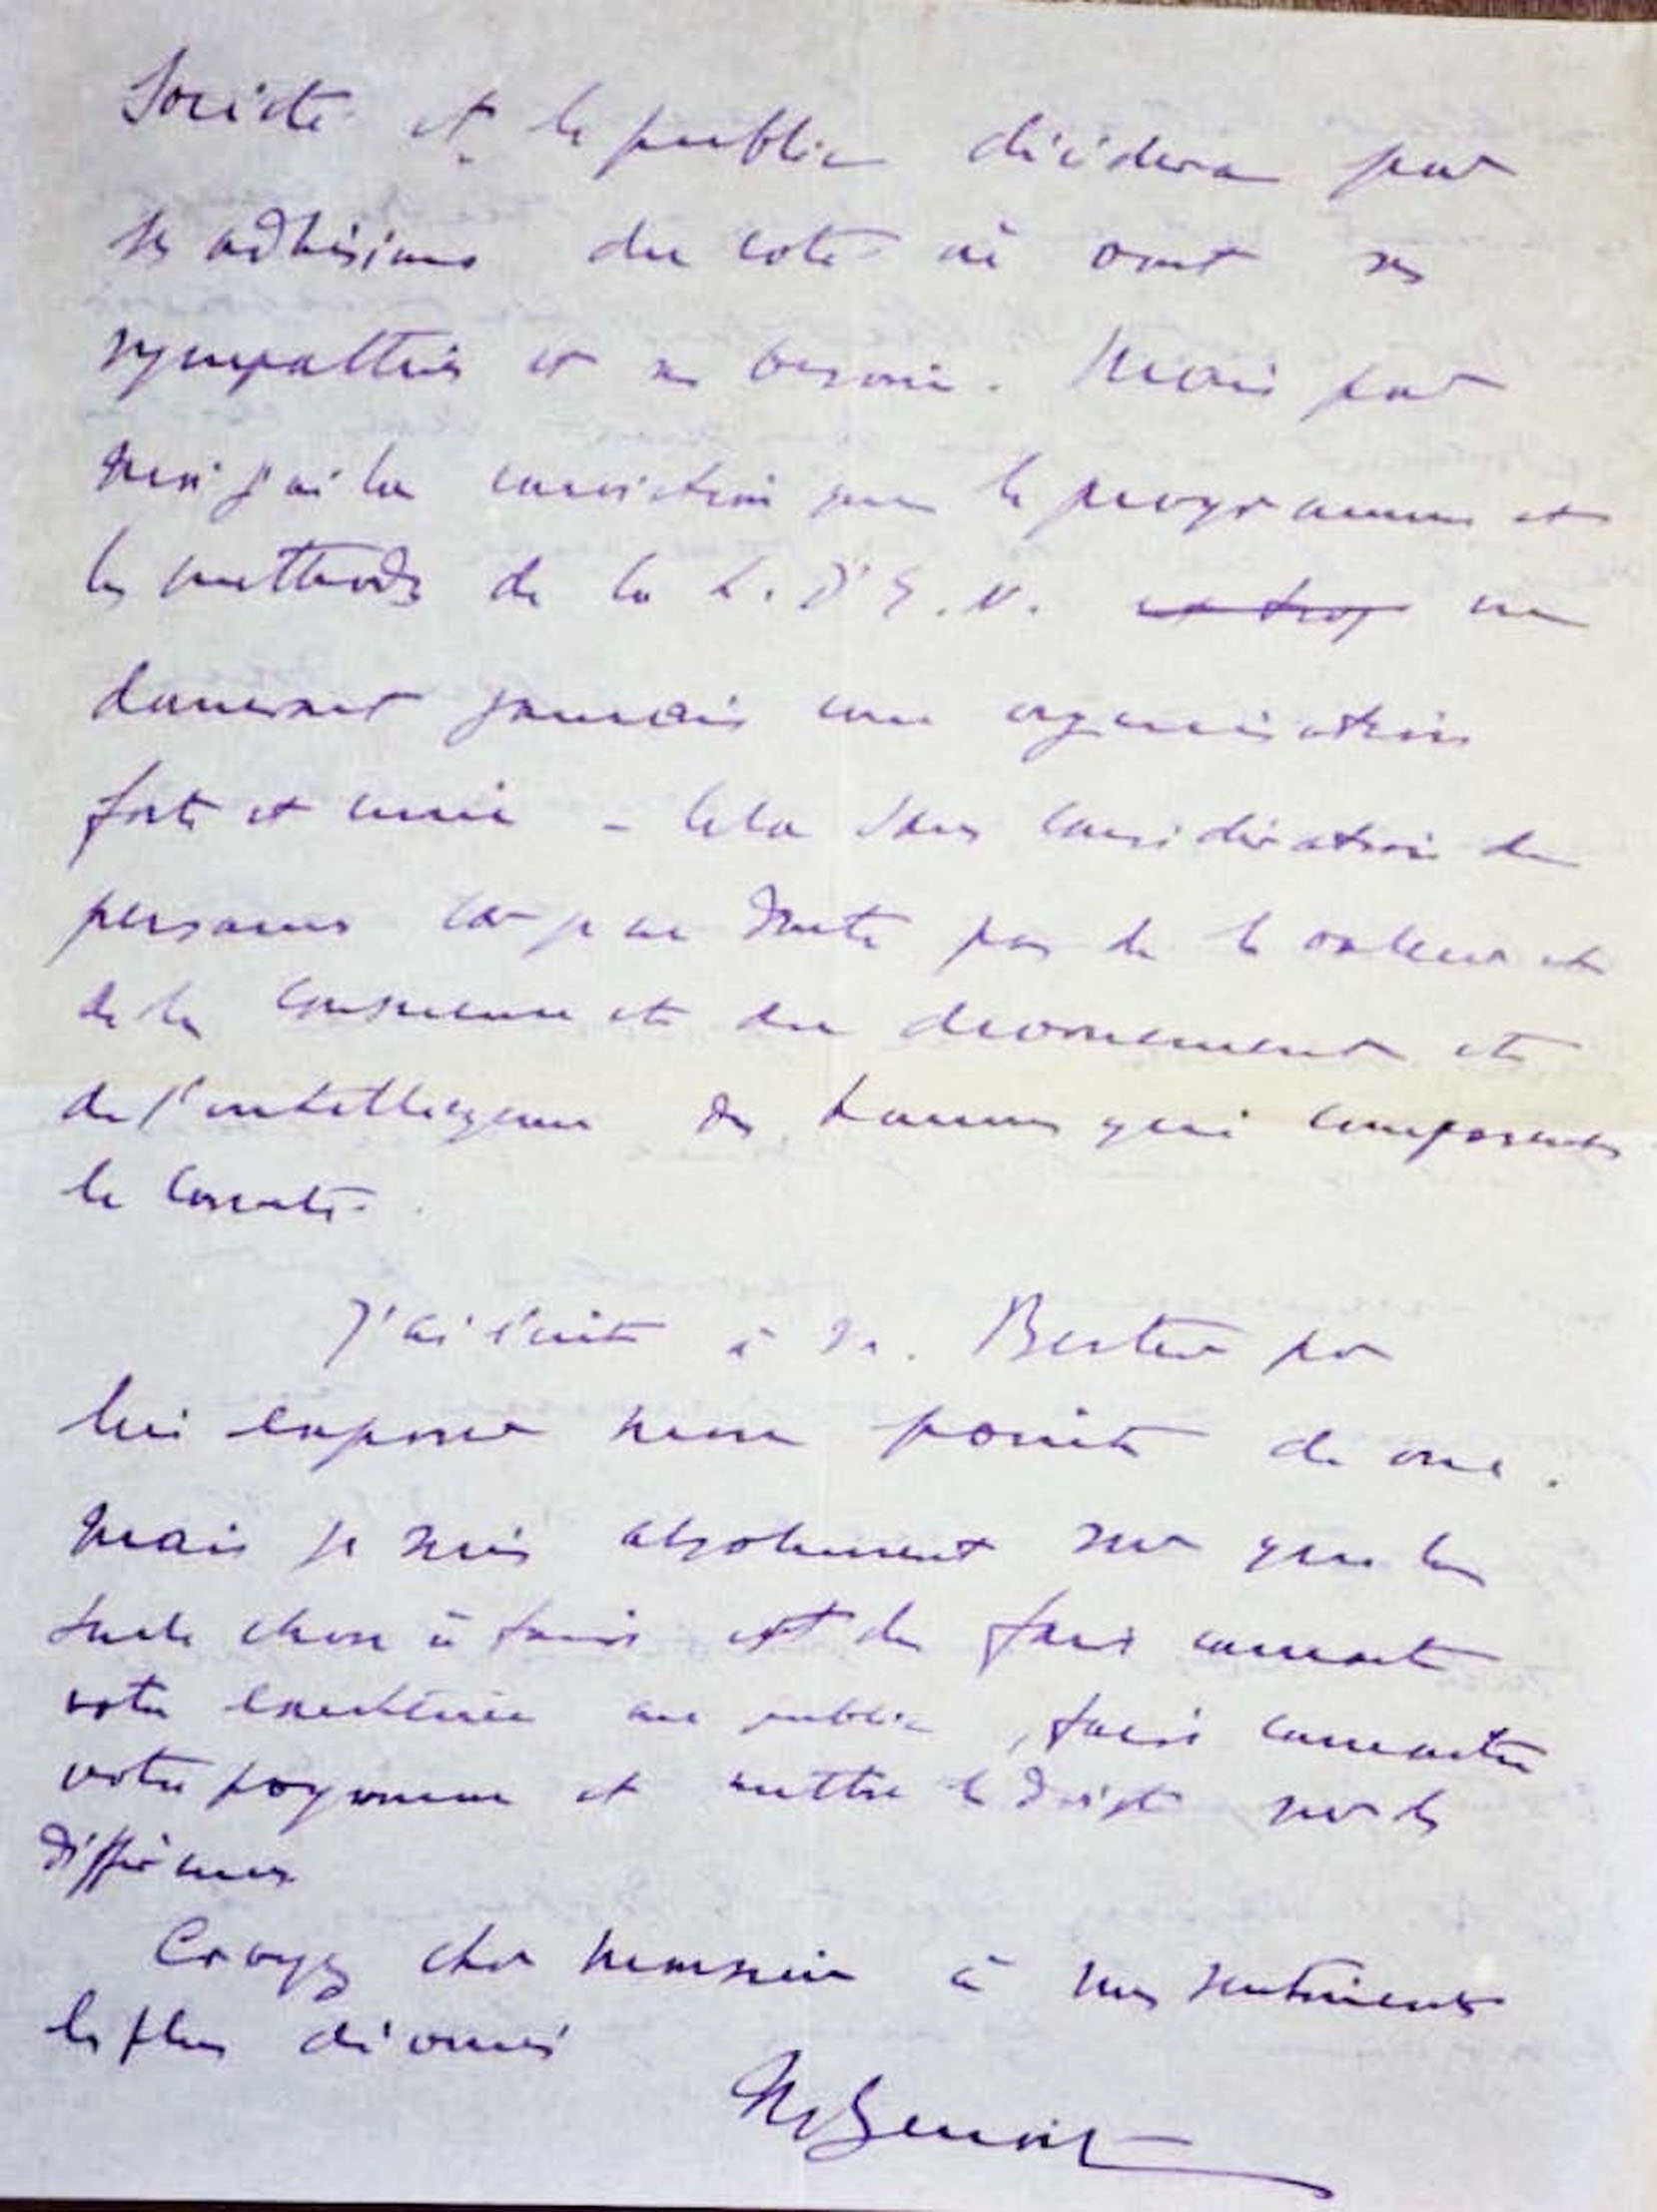 Société et le public décidera par
ses adhésions du coté où vont ses
sympathies et ses besoins. Mais pour
moi j'ai la conviction que le programme et
les methodes de la L. D'E. N. est trop ne
donneront jamais une organisation
forte et unie - Cela sans considération de
personnes car je ne doute pas de la valeur et
de la conscience et du devouement et
de l'intelligence des hommes qui composent
le Comité.
J'ai écrit à M. Berteux pour
lui exposer mon point de vue.
Mais je suis absolument sur que la
seule chose à faire est de faire connaitre
votre existence au public, faire connaitre
votre programme et mettre le doigt sur les
différences
Croyez cher Monsieur à mes sentiments
les plus dévoués
Benoit